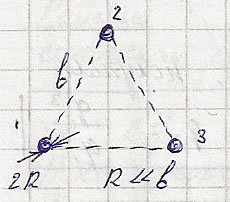 2
b
1
3
2R
R << b